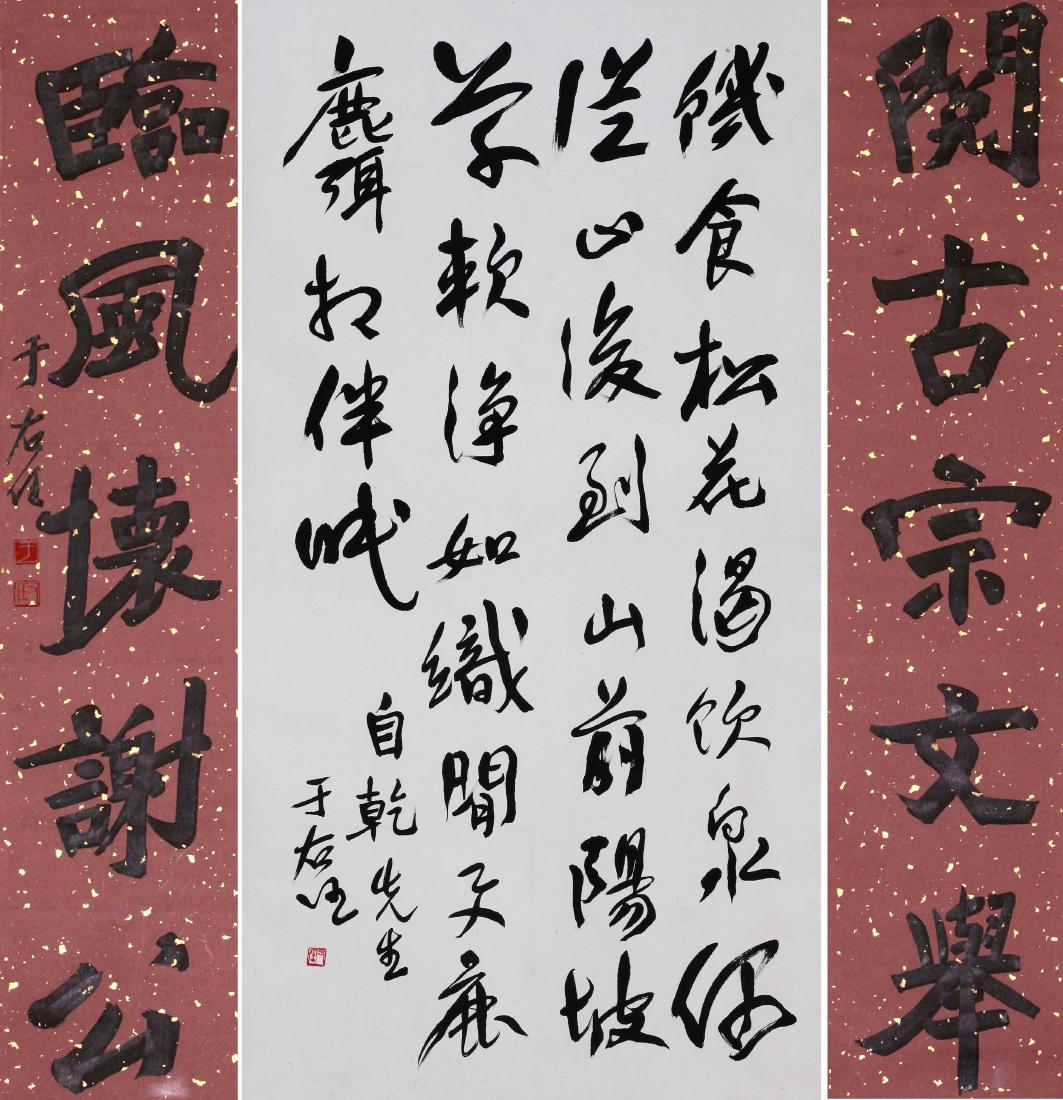 閱古宗文舉
饑食松花渴飲泉偶
從山後到山前陽坡
草軟淨如織閒與鹿
麛相伴眠
自乾先生
于右任
臨風懷謝公
于右任